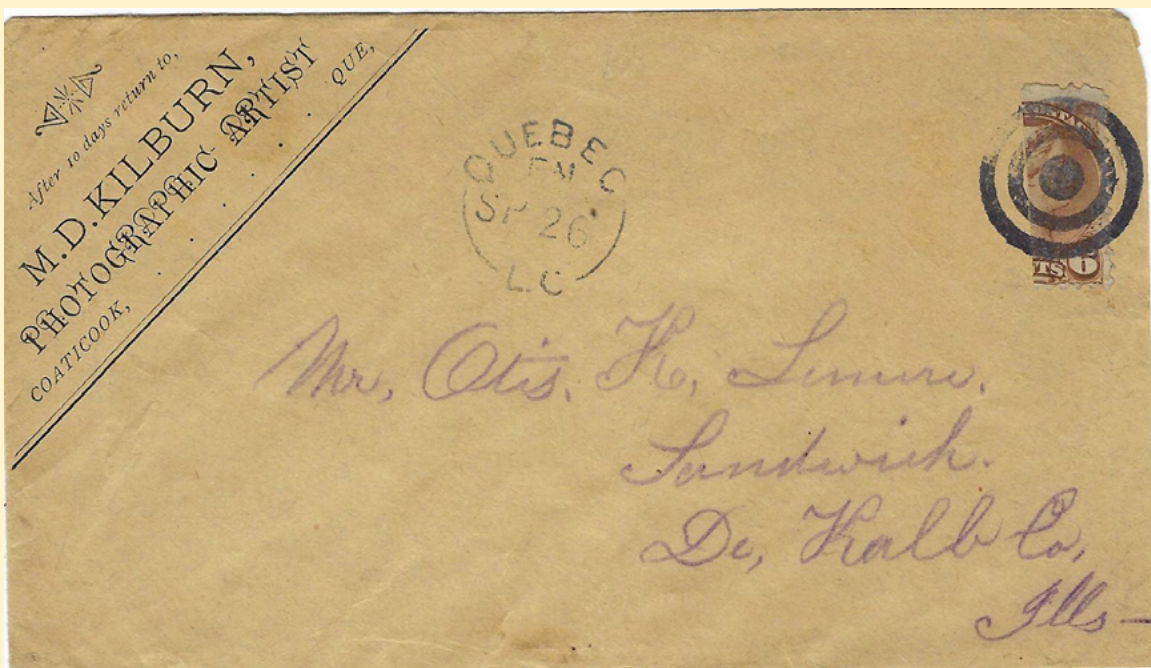 After 10 days return to,
M. D. KILBURN,
PHOTOGRAPHIC ARTIST
COATICOOK, QUE,
QUEBEC
PM
SP 26
L.C
POSTAG
TS 6
Mr, Otis. K,
Sandwich.
De, Kalb Co,
Ills —